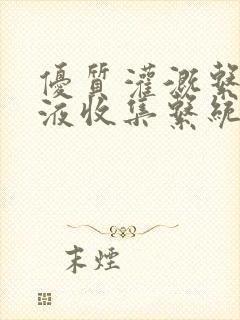 優質灌溉繫
液收集繫統
末煙